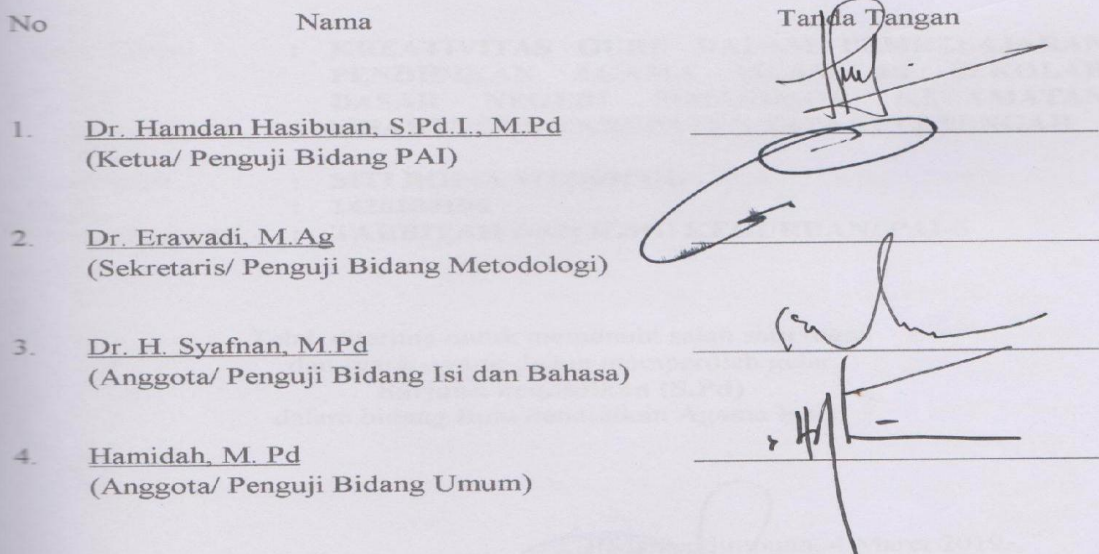 No Nama Tanda Tangan
1. Dr. Hamdan Hasibuan, S.Pd.I., M.Pd
(Ketua/ Penguji Bidang PAI)
2. Dr. Erawadi, M.Ag
(Sekretaris/ Penguji Bidang Metodologi)
3. Dr. H. Syafnan, M Pd
(Anggota/ Penguji Bidang Isi dan Bahasa)
4. Hamidah, M. Pd
(Anggota/ Penguji Bidang Umum)